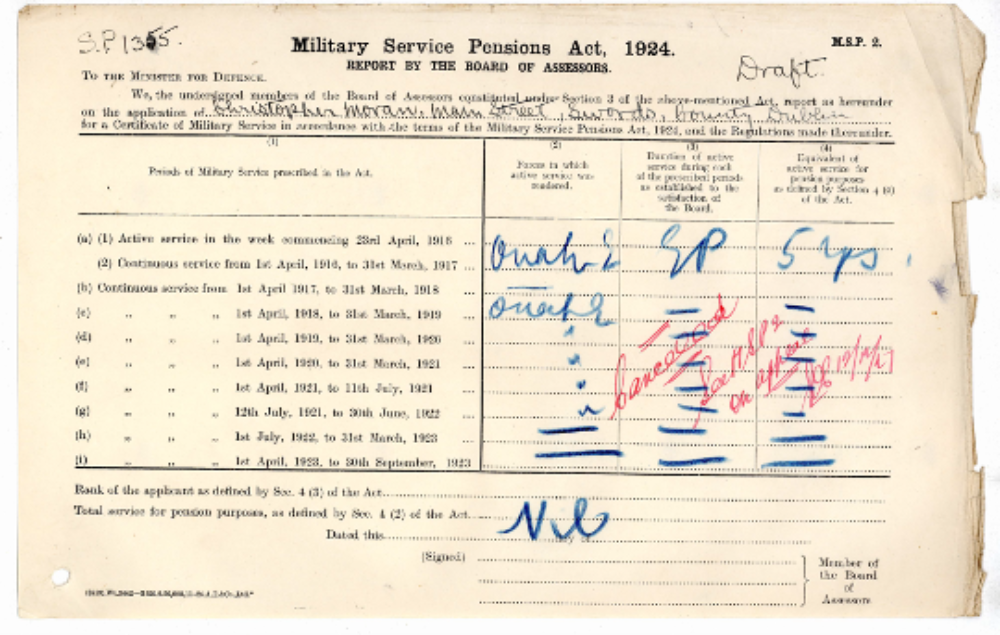 S.P. 1355.
Military Service Pensions Act, 1924.
M.S.P. 2.
REPORT BY THE BOARD OF ASSESSORS.
Draft.
To the Minister for Defence.
We, the undersigned members of the Board of Assessors constituted under Section 3 of the above-mentioned Act, report as hereunder
on the application of Christopher Moran, Main Street, Swords, County Dublin
for a Certificate of Military Service in accordance with the terms of the Military Service Pensions Act, 1924, and the Regulations made thereunder.
(1) (2) (3) (4)
Periods of Military Service prescribed in the Act.
Forces in which active service was rendered.
Duration of active service during each of the prescribed periods as established to the satisfaction of the Board.
Equivalent of active service for pension purposes as defined by Section 4 (2) of the Act.
(a) (1) Active service in the week commencing 23rd April, 1916 ... E GP 5 yrs
(2) Continuous service from 1st April, 1916, to 31st March, 1917 ...
(b) Continuous service from 1st April 1917, to 31st March, 1918
(c) " " " 1st April, 1918, to 31st March, 1919 ...
(d) " " " 1st April, 1919, to 31st March, 1920 ... "
(e) " " " 1st April, 1920, to 31st March, 1921 ... "
(f) " " " 1st April, 1921, to 11th July, 1921 ... "
(g) " " " 12th July, 1921, to 30th June, 1922 ... "
(h) " " " 1st July, 1922, to 31st March, 1923 ...
(i) " " " 1st April, 1923, to 30th September, 1923
Cancelled
See MSP 2
on appeal
12/12/27
Rank of the applicant as defined by Sec. 4 (3) of the Act
Total service for pension purposes, as defined by Sec. 4 (2) of the Act Nil
Dated this day of
(Signed)
Member of
the Board
of
Assessors